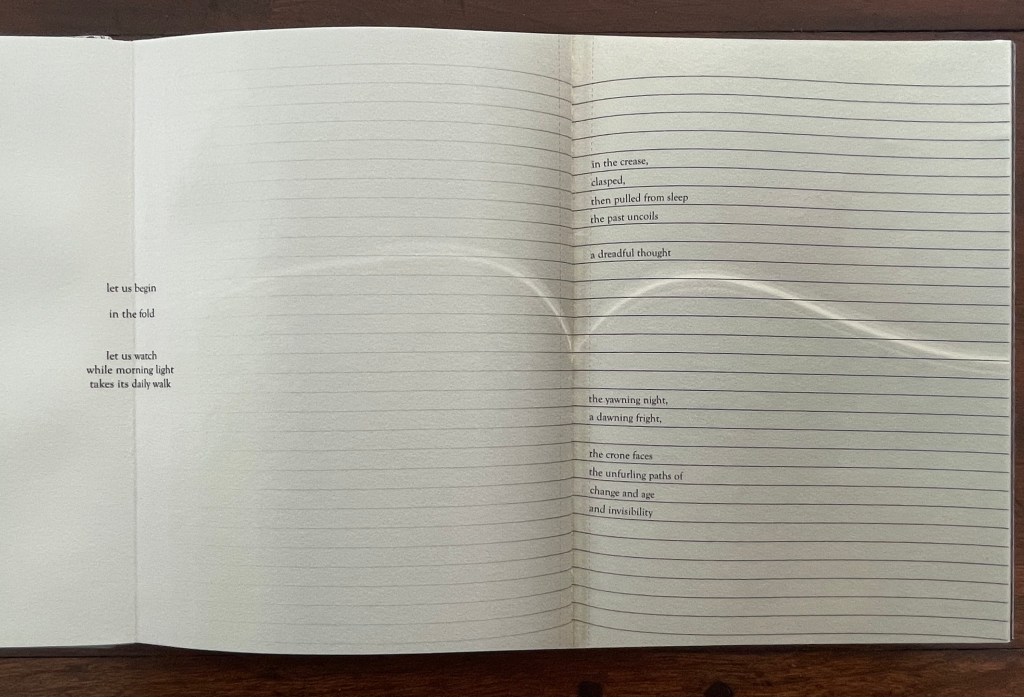 let us begin
in the fold
let us watch
while morning light
takes its daily walk
in the crease,
clasped,
then pulled from sleep
the past uncoils
a dreadful thought
the yawning night,
a dawning fright,
the crone faces
the unfurling paths of
change and age
and invisibility